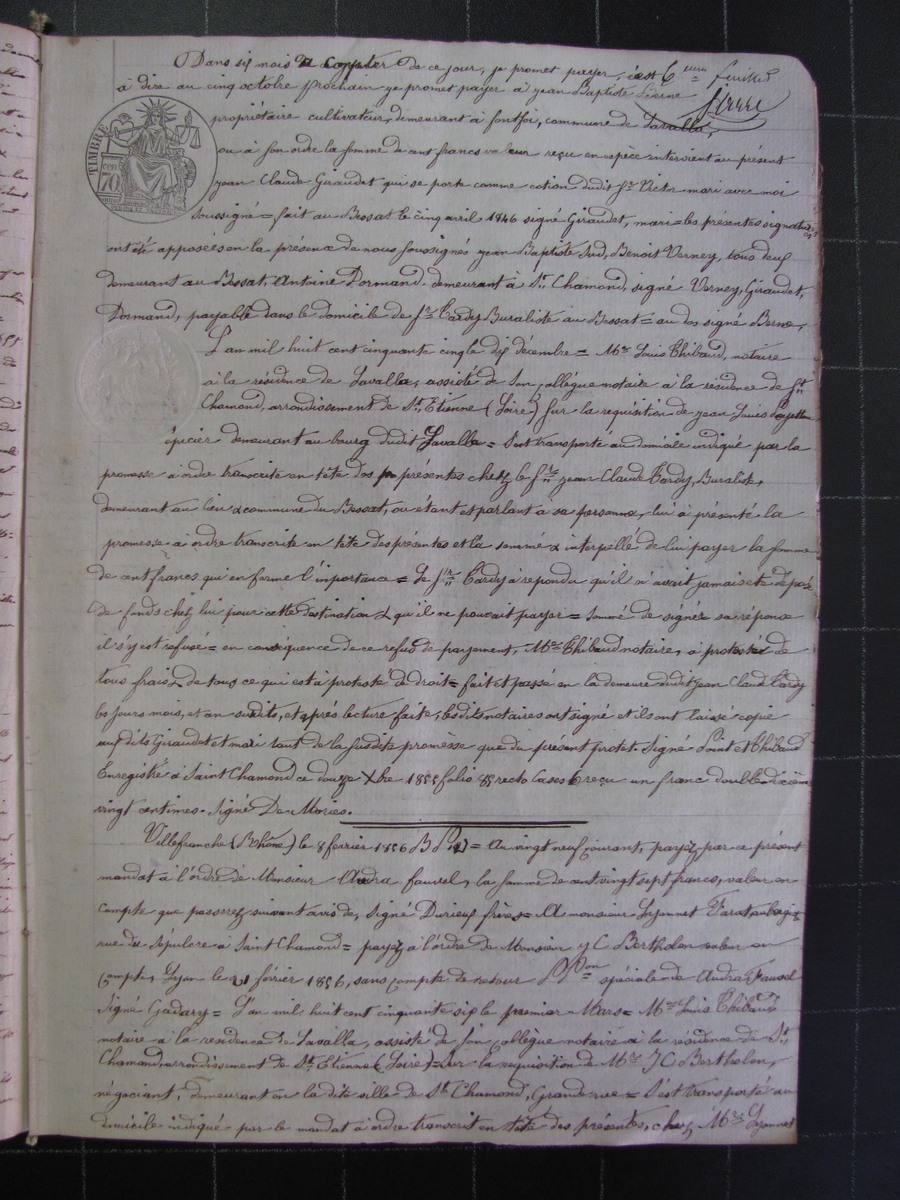 Dans six mois à compter de ce jour, je promet payer, c'est 6eme feuillet
à dire au cinq octobre prochain je promet payer à jean Baptiste
propriétaire cultivateur, demeurant à fontfoi, commune de Lavalla,
TIMBRE
70
ou à son ordre la somme de cent francs valeur reçu en espèce intervient au présent
jean Claude Giraudet qui se porte comme cotion dudit sr Victor mari avec moi
soussigné = fait au Bessat le cinq avril 1846 signé Giraudet, mari = les présentes signatures
ont été apposées en la présence de nous soussignés jean Baptiste Sud, Benoit Verney, tous deux
demeurant au Bessat, Antoine Dormand demeurant à St Chamond, signé Verney, Giraudet,
Dormand, payable dans le domicile de sr Tardy Buraliste au Bessat = au dos signé Berne,
L'an mil huit cent cinquante cinq le dix décembre = Me Louis Thibaud, notaire
à la résidence de Lavalla, assisté de son collègue notaire à la résidence de St
Chamond, arrondissement de St Etienne (Loire) sur la requisition de jean Louis
épicier demeurant au bourg dudit Lavalla = s'est transporté au domicile indiqué par la
promesse à ordre transcrite en tête des présentes chez le sr jean Claude Tardy, Buraliste,
demeurant au lieu & commune du Bessat, ou étant et parlant a sa personne, lui à présenté la
promesse à ordre transcrite en tête des présentes et la sommé & interpellé de lui payer la somme
de cent francs qui en forme l'importance = le sr Tardy à repondu qu'il n'avait jamais ete déposé
de fonds chez lui pour cette destination & qu'il ne pouvait payer = sommé de signer sa réponse
il s'y est refusé = en conséquence de ce refus de payement, Me Thibaud notaire, à protesté de
tous frais & de tous ce qui est à protesté de droit = fait et passé en la demeure dudit jean Claude Tardy
les jours mois, et an susdits, et après lecture faite, lesdits notaires ont signé et ils ont laissé copie
auxdits Giraudet et mari tant de la susdite promesse que du présent protet. Signé Finet et Thibaud
Enregistré à Saint Chamond ce douze Xbre 1855 folio 85 recto cases 6 reçu un franc double décime
vingt centimes. Signé De Mories.
Villefranche (Rhône) le 8 fevrier 1856 B P 127 = Au vingt neuf courant, payez par ce présent
mandat à l'ordre de Monsieur Audra fauvel, la somme de cent vingt sept francs, valeur en
compte que passerez suivant avis de, signé Durieux frères = A monsieur Lyonnet
rue du Sépulcre à Saint Chamond = payez à l'ordre de Monsieur J C Bertholon valeur en
compte, Lyon le 21 février 1856, sans compte de retour Ppon spéciale de Audra Fauvel
Signé Gadary = L'an mil huit cent cinquante six le premier Mars = Me Louis Thibaud
notaire à la résidence de Lavalla, assisté de son collègue notaire à la résidence de St
Chamond, arrondissement de St Etienne (Loire) = sur la requisition de Mr J C Bertholon,
négociant, demeurant en la dite ville de St Chamond, Grande rue = s'est transporté au
domicile indiqué par le mandat à ordre transcrit en tête des présentes, chez Mr Lyonnet